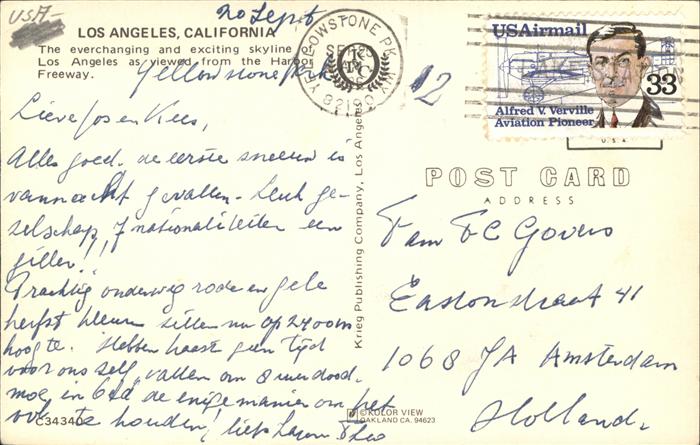 USA-
20 Sept
LOS ANGELES, CALIFORNIA
The everchanging and exciting skyline of
Los Angeles as viewed from the Harbor
Freeway.
Yellowstone Park
Lieve Jos en Kees,
Alles goed. de eerste sneeuw is
vannacht gevallen. Leuk ge-
zelschap, 7 nationaliteiten een
giller!!
Prachtig onderweg rode en gele
herfst kleuren zitten nu op 2400m
hoogte. Hebben haast geen tijd
voor ons self, vallen om 8 uur dood.
moe in bed de enige manier om het
vol te houden! liefs Theo
C34340
YELLOWSTONE PK WY
SEP 20
AM
82190
12
USAirmail
33
Alfred V. Verville
Aviation Pioneer
U.S.A.
POST CARD
ADDRESS
Fam FC Govers
Eastonstraat 41
1068 JA Amsterdam
Holland.
Krieg Publishing Company, Los Angeles
© KOLOR VIEW
OAKLAND CA. 94623